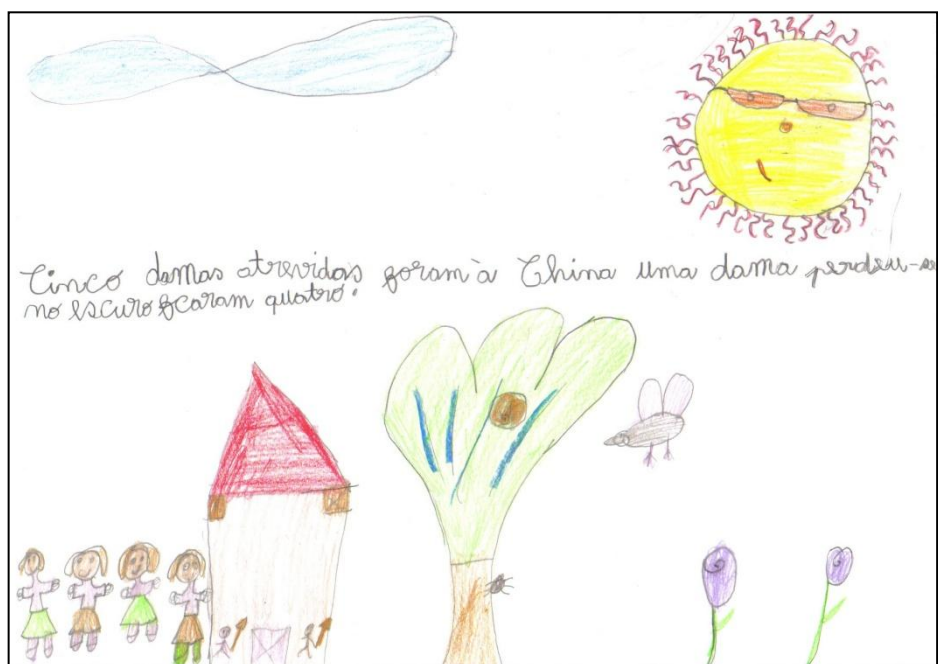 Cinco damas atrevidas foram à China uma dama perdeu-se
no escuro ficaram quatro.